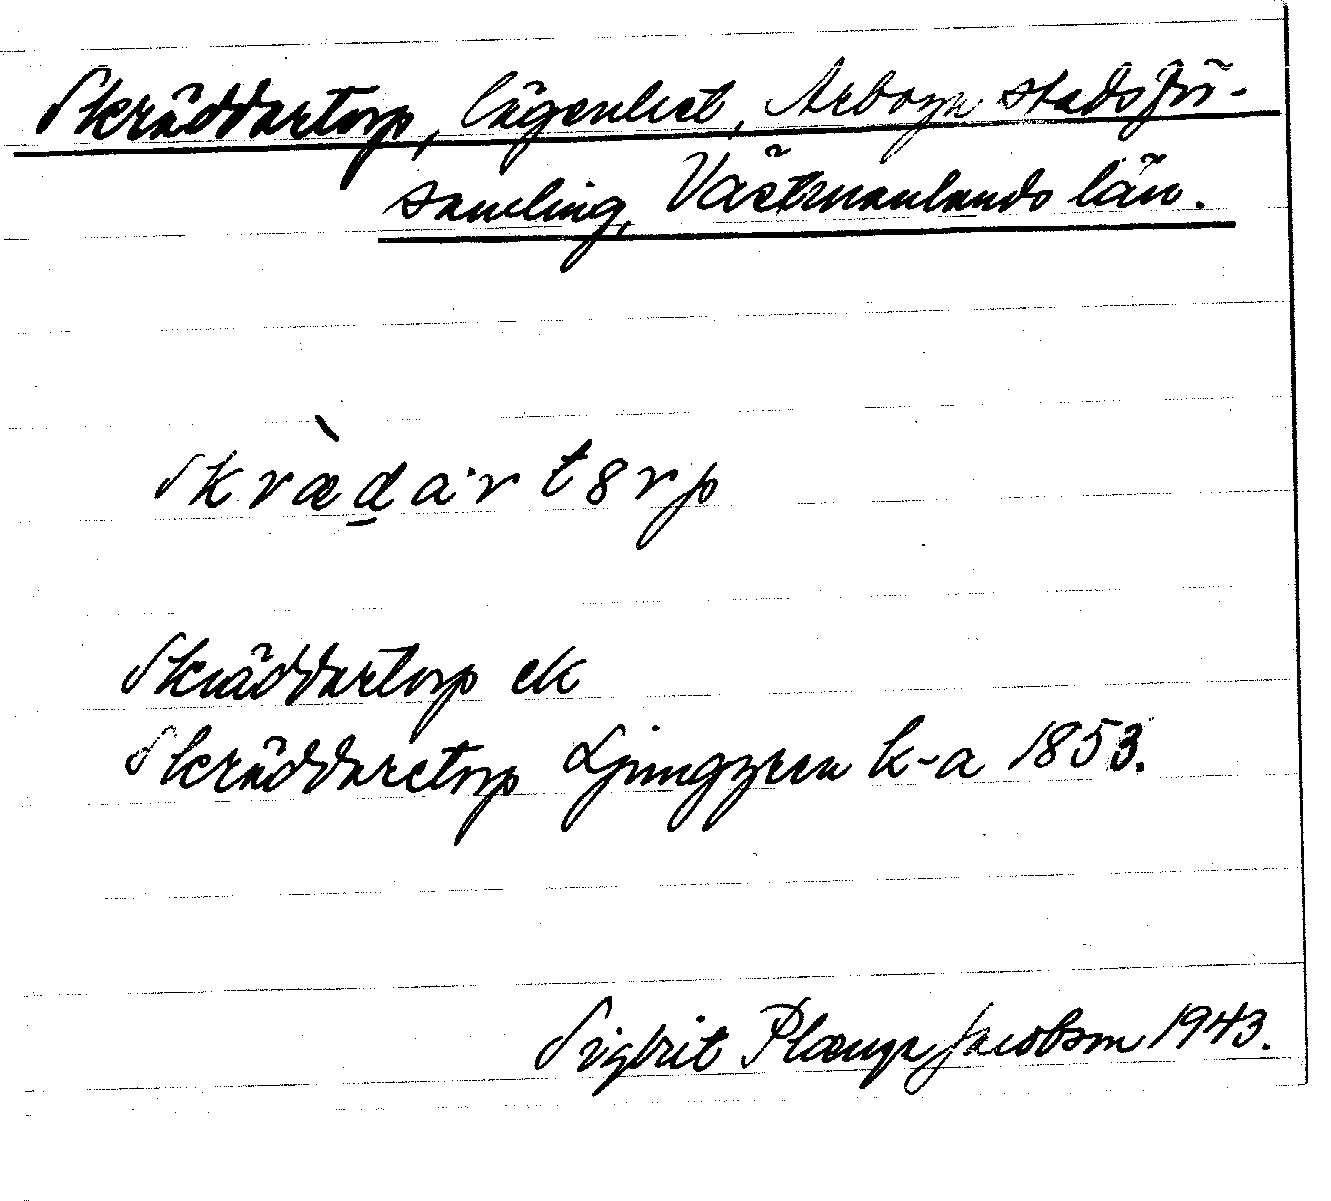 Skräddartorp, lägenhet, Arboga stadsför-
samling, Västmanlands län.
skræ̀d̲a·rt8rp
Skräddartorp ek
Skräddaretorp Ljunggren k-a 1853.
Sigbrit Plænge Jacobson 1943.